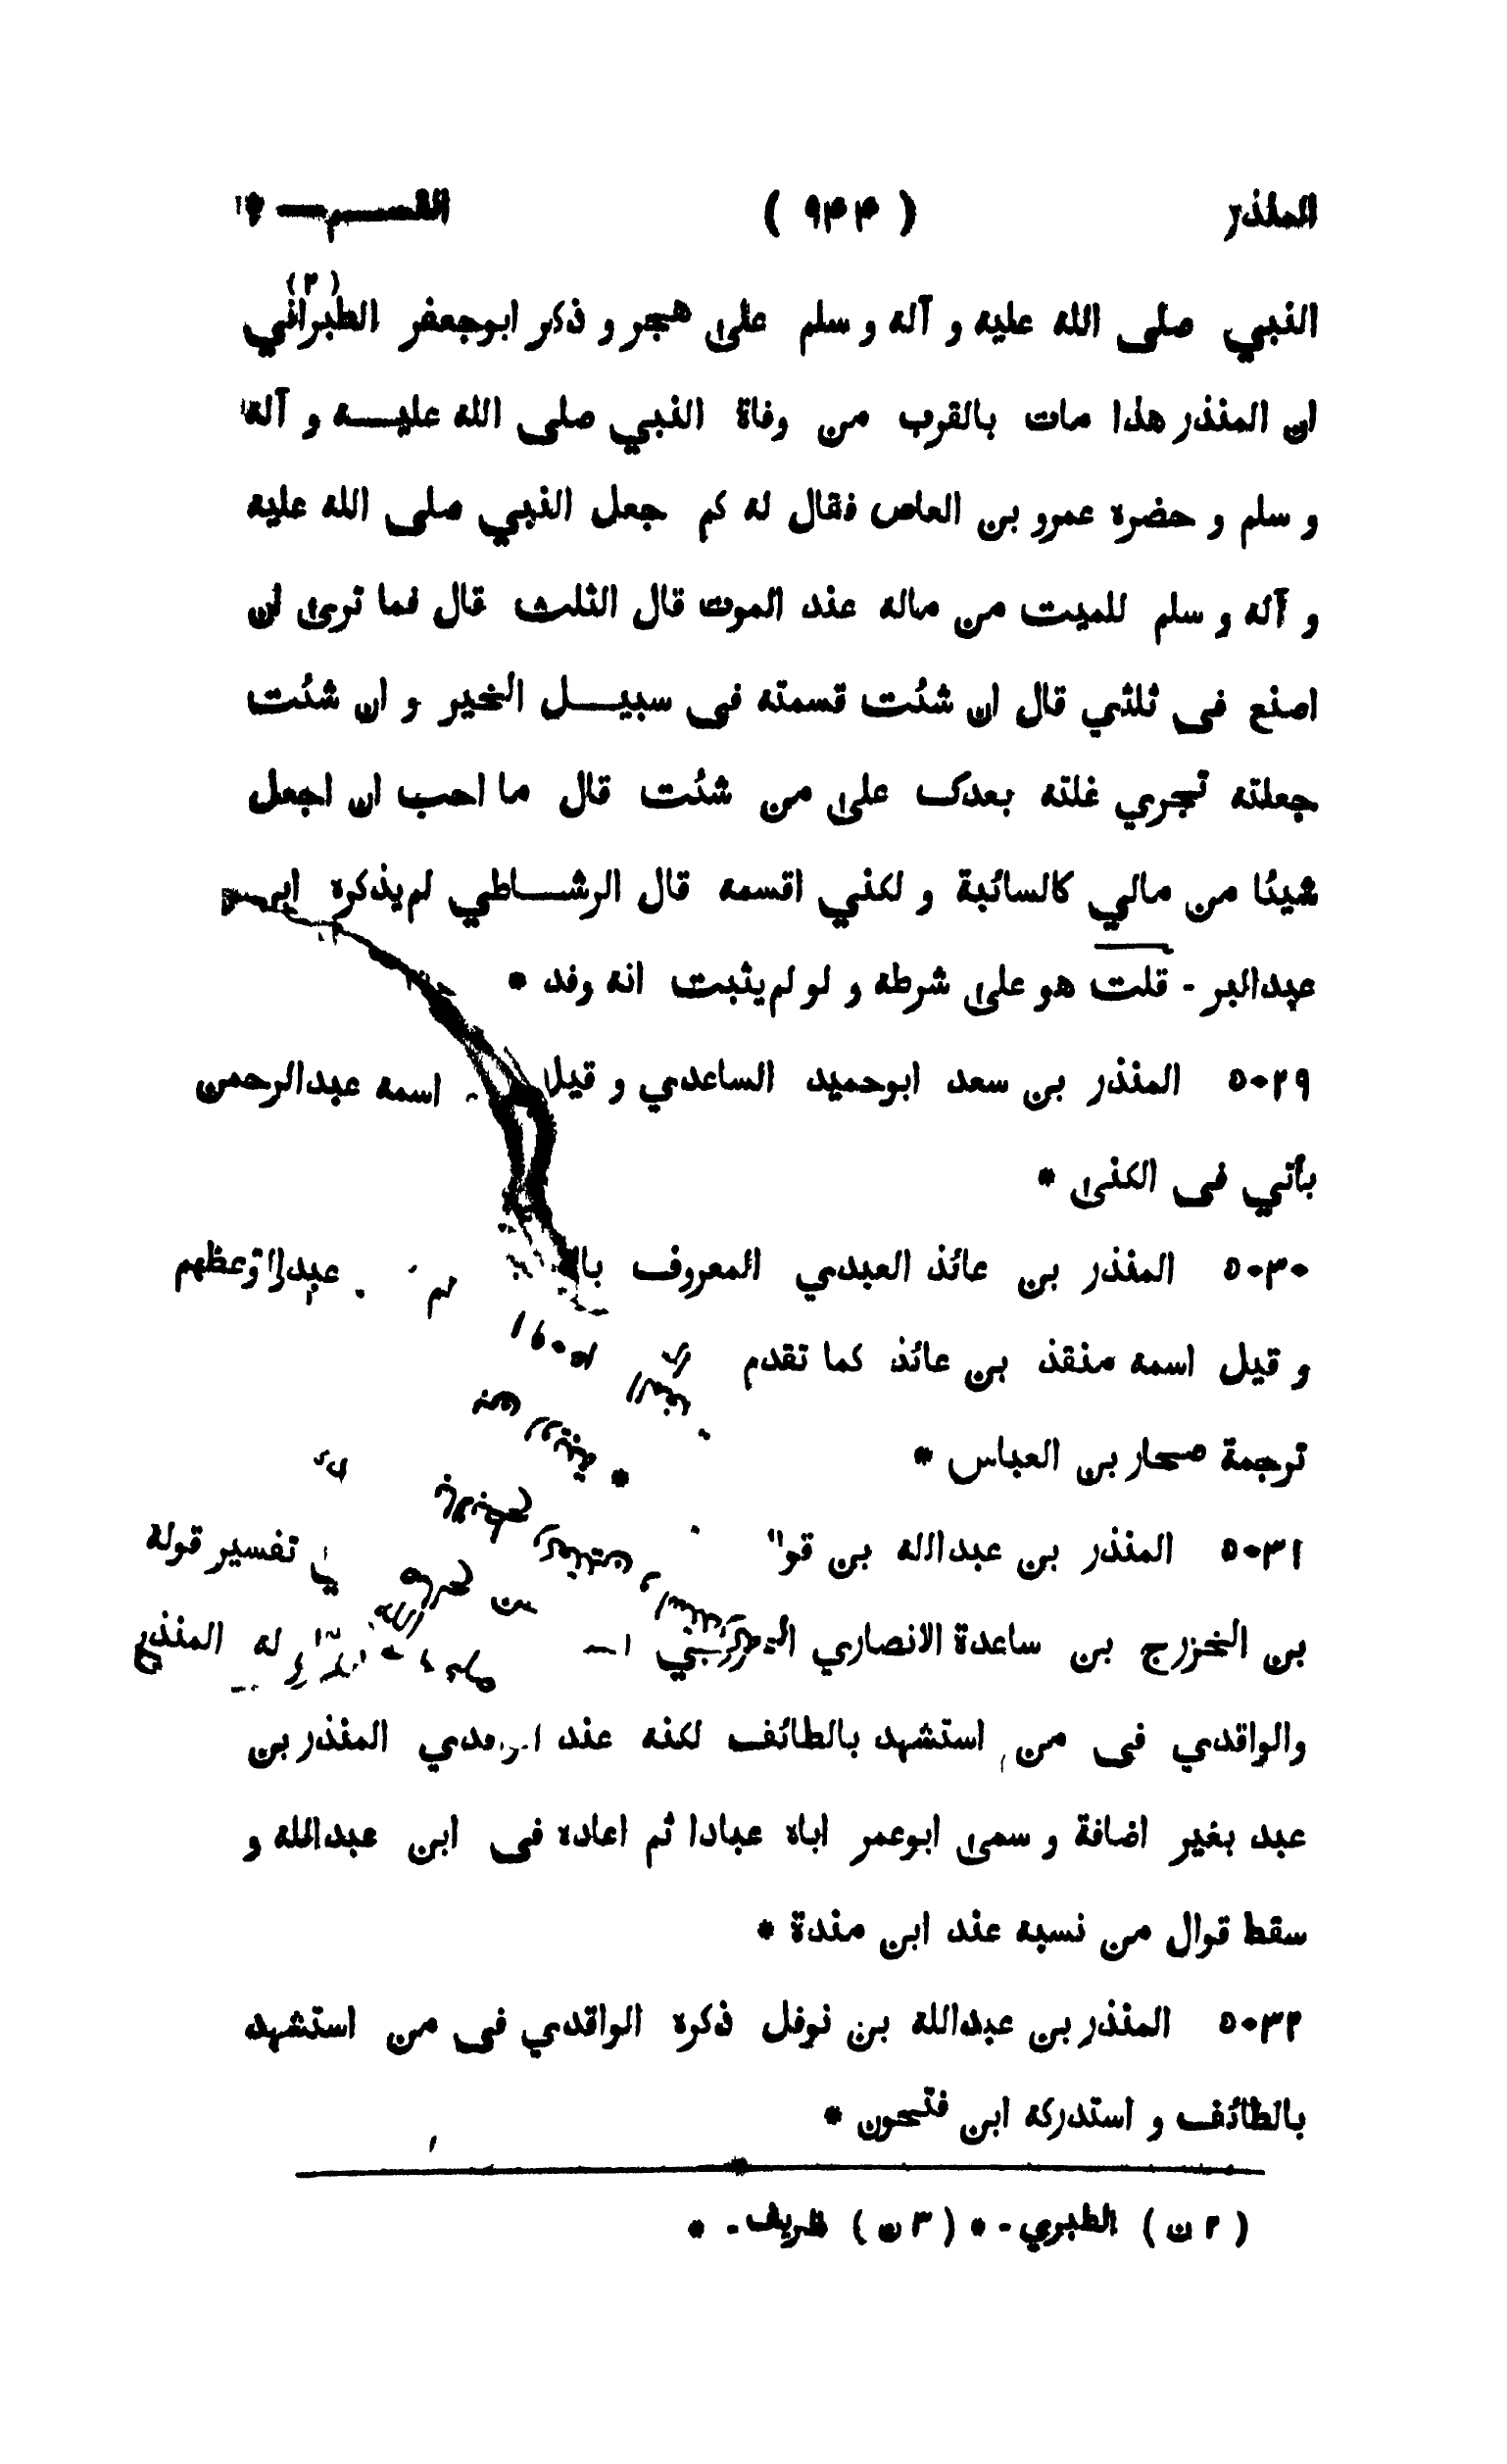 المنذر ( ٩٤٤ ) القسم
النبي صلى الله عليه و آله و سلم على هجر و ذكر ابوجعفر الطبراني (٢)
ان المنذر هذا مات بالقرب من وفاة النبي صلى الله عليه و آله
و سلم و حضره عمرو بن العاص فقال له كم جعل النبي صلى الله عليه
و آله و سلم للميت من ماله عند الموت قال الثلث قال فما ترى ان
اصنع فى ثلثي قال ان شئت قسمته فى سبيل الخير و ان شئت
جعلته تجري غلته بعدك على من شئت قال ما احب ان اجعل
شيئا من مالي كالسائبة و لكني اقسمه قال الرشاطي لم يذكره
عبدالبر - قلت هو على شرطه و لو لم يثبت انه وفد *
٥٠٢٩ المنذر بن سعد ابوحميد الساعدي و قيل اسمه عبدالرحمن
يأتي فى الكنى *
٥٠٣٠ المنذر بن عائذ العبدي المعروف
و قيل اسمه منقذ بن عائذ كما تقدم
ترجمة صحار بن العباس *
٥٠٣١ المنذر بن عبدالله بن تفسير قوله
بن الخزرج بن ساعدة الانصاري له المنذر
والواقدي فى من استشهد بالطائف لكنه عند المنذر بن
عبد بغير اضافة و سمى ابوعمر اباه عبادا ثم اعاده فى ابن عبدالله و
سقط قوال من نسبه عند ابن مندة *
٥٠٣٢ المنذر بن عبدالله بن نوفل ذكره الواقدي فى من استشهد
بالطائف و استدركه ابن فتحون *
( ٢ ن ) الطبري - * ( ٣ ن ) ظريف - *